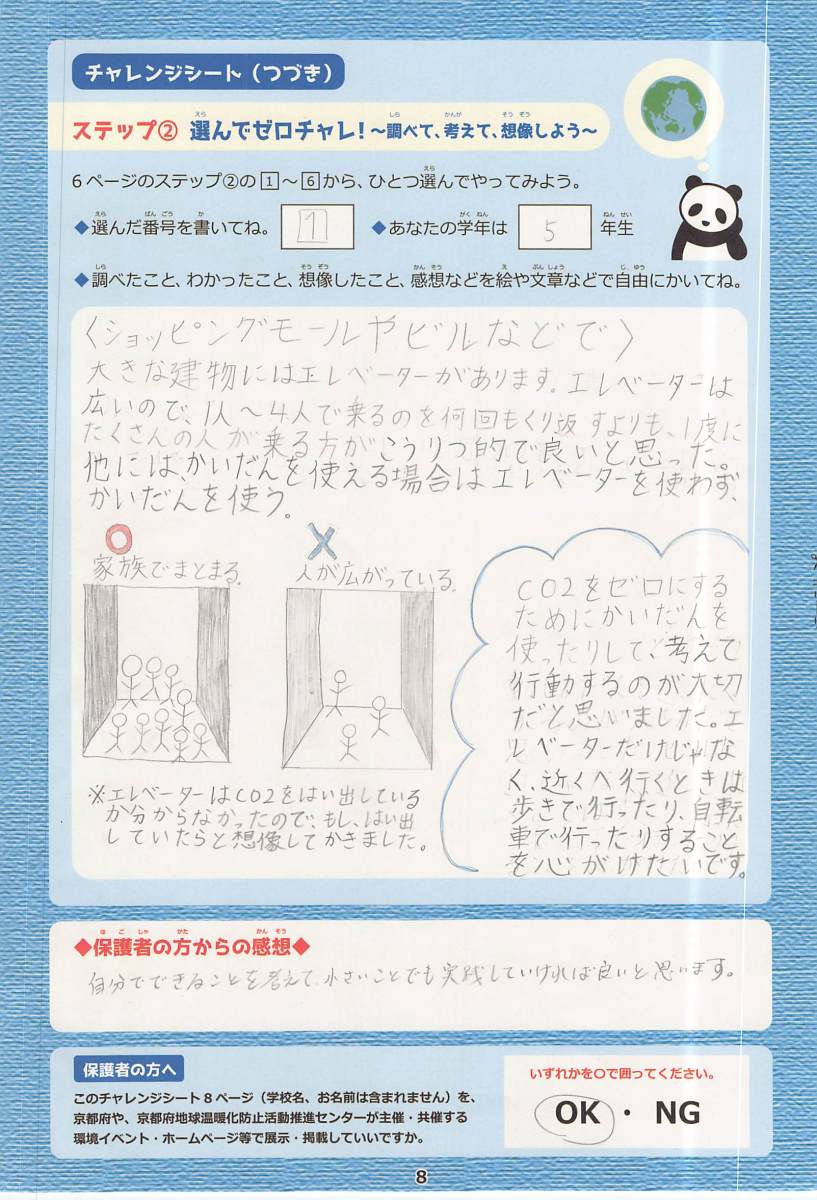 チャレンジシート（つづき）
ステップ② 選んでゼロチャレ！～調べて、考えて、想像しよう～
6ページのステップ②の1～6から、ひとつ選んでやってみよう。
◆選んだ番号を書いてね。 1 ◆あなたの学年は 5 年生
◆調べたこと、わかったこと、想像したこと、感想などを絵や文章などで自由にかいてね。
〈ショッピングモールやビルなどで〉
大きな建物にはエレベーターがあります。エレベーターは
広いので、1人～4人で乗るのを何回もくり返すよりも、1度に
たくさんの人が乗る方がこうりつ的で良いと思った。
他には、かいだんを使える場合はエレベーターを使わず、
かいだんを使う。
○
家族でまとまる。
×
人が広がっている。
※エレベーターはCO2をはい出している
か分からなかったので、もし、はい出
していたらと想像してかきました。
CO2をゼロにする
ためにかいだんを
使ったりして、考えて
行動するのが大切
だと思いました。エ
レベーターだけじゃな
く、近くへ行くときは
歩きで行ったり、自転
車で行ったりすること
を心がけたいです。
◆保護者の方からの感想◆
自分でできることを考えて、小さいことでも実践していければ良いと思います。
保護者の方へ
このチャレンジシート8ページ（学校名、お名前は含まれません）を、
京都府や、京都府地球温暖化防止活動推進センターが主催・共催する
環境イベント・ホームページ等で展示・掲載していいですか。
いずれかを○で囲ってください。
OK ・ NG
8